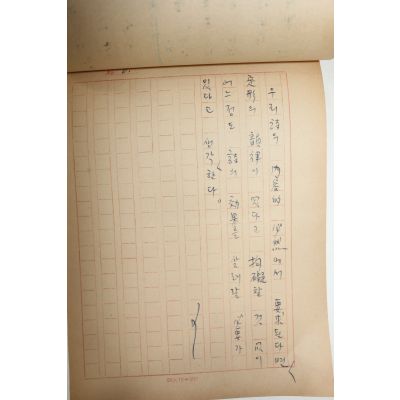 우리 詩의 內容的 必然에서 要求된다면
定形의 韻律이 갔다고 拘礙할 것 없이
어느 정도 詩의 効果를 노래할 必要가
있다고 생각한다。